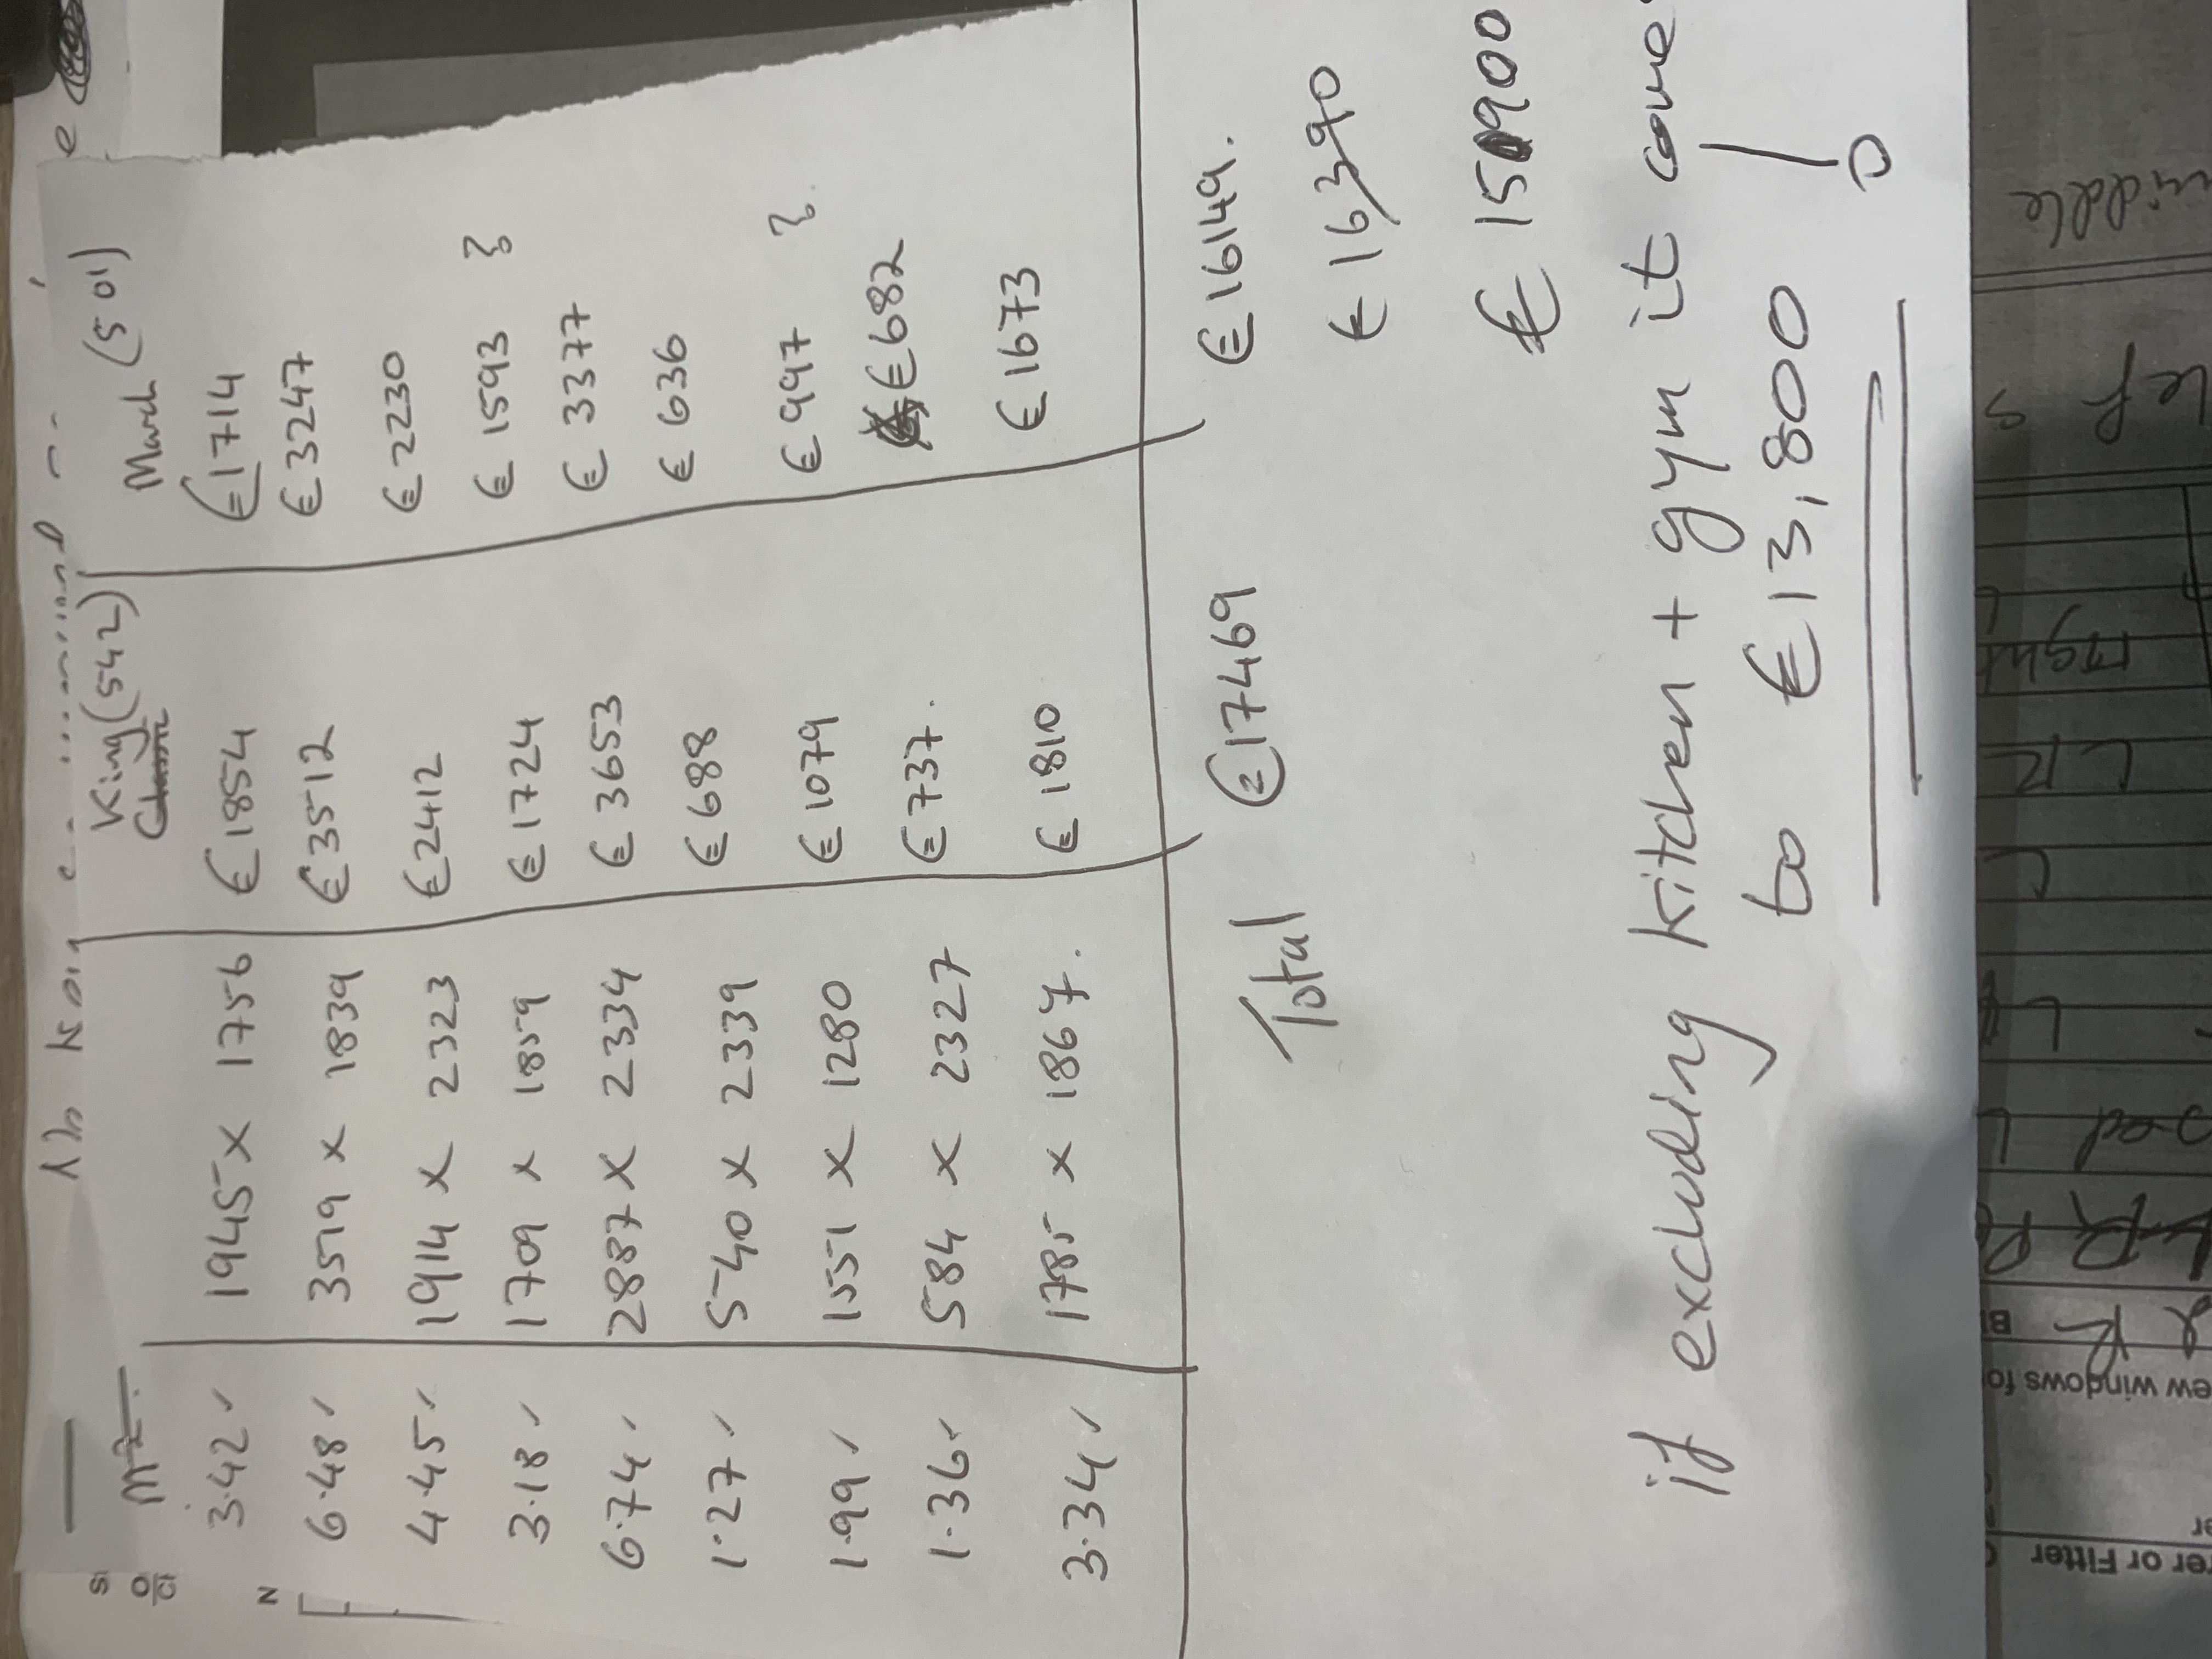 m² King (542) March (501)
Classic
3.42 ✓ 1945 x 1756 €1854 €1714
6.48 ✓ 3519 x 1839 €3512 €3247
4.45 ✓ 1914 x 2323 €2412 €2230
3.18 ✓ 1709 x 1859 €1724 €1593 }
6.74 ✓ 2887 x 2334 €3653 €3377
1.27 ✓ 540 x 2339 €688 €636
1.99 ✓ 1551 x 1280 €1079 €997 }.
1.36 ✓ 584 x 2327 €737. €682
3.34 ✓ 1785 x 1867. €1810 €1673
Total €17469 €16149.
€16390
€15900
if excluding kitchen + gym it come
to €13,800
middle
Left s
right
LR
L
L
L
R
ew windows fo
er or Fitter